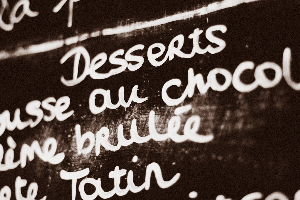 Desserts
ousse au chocol
ème brulée
ete Tatin